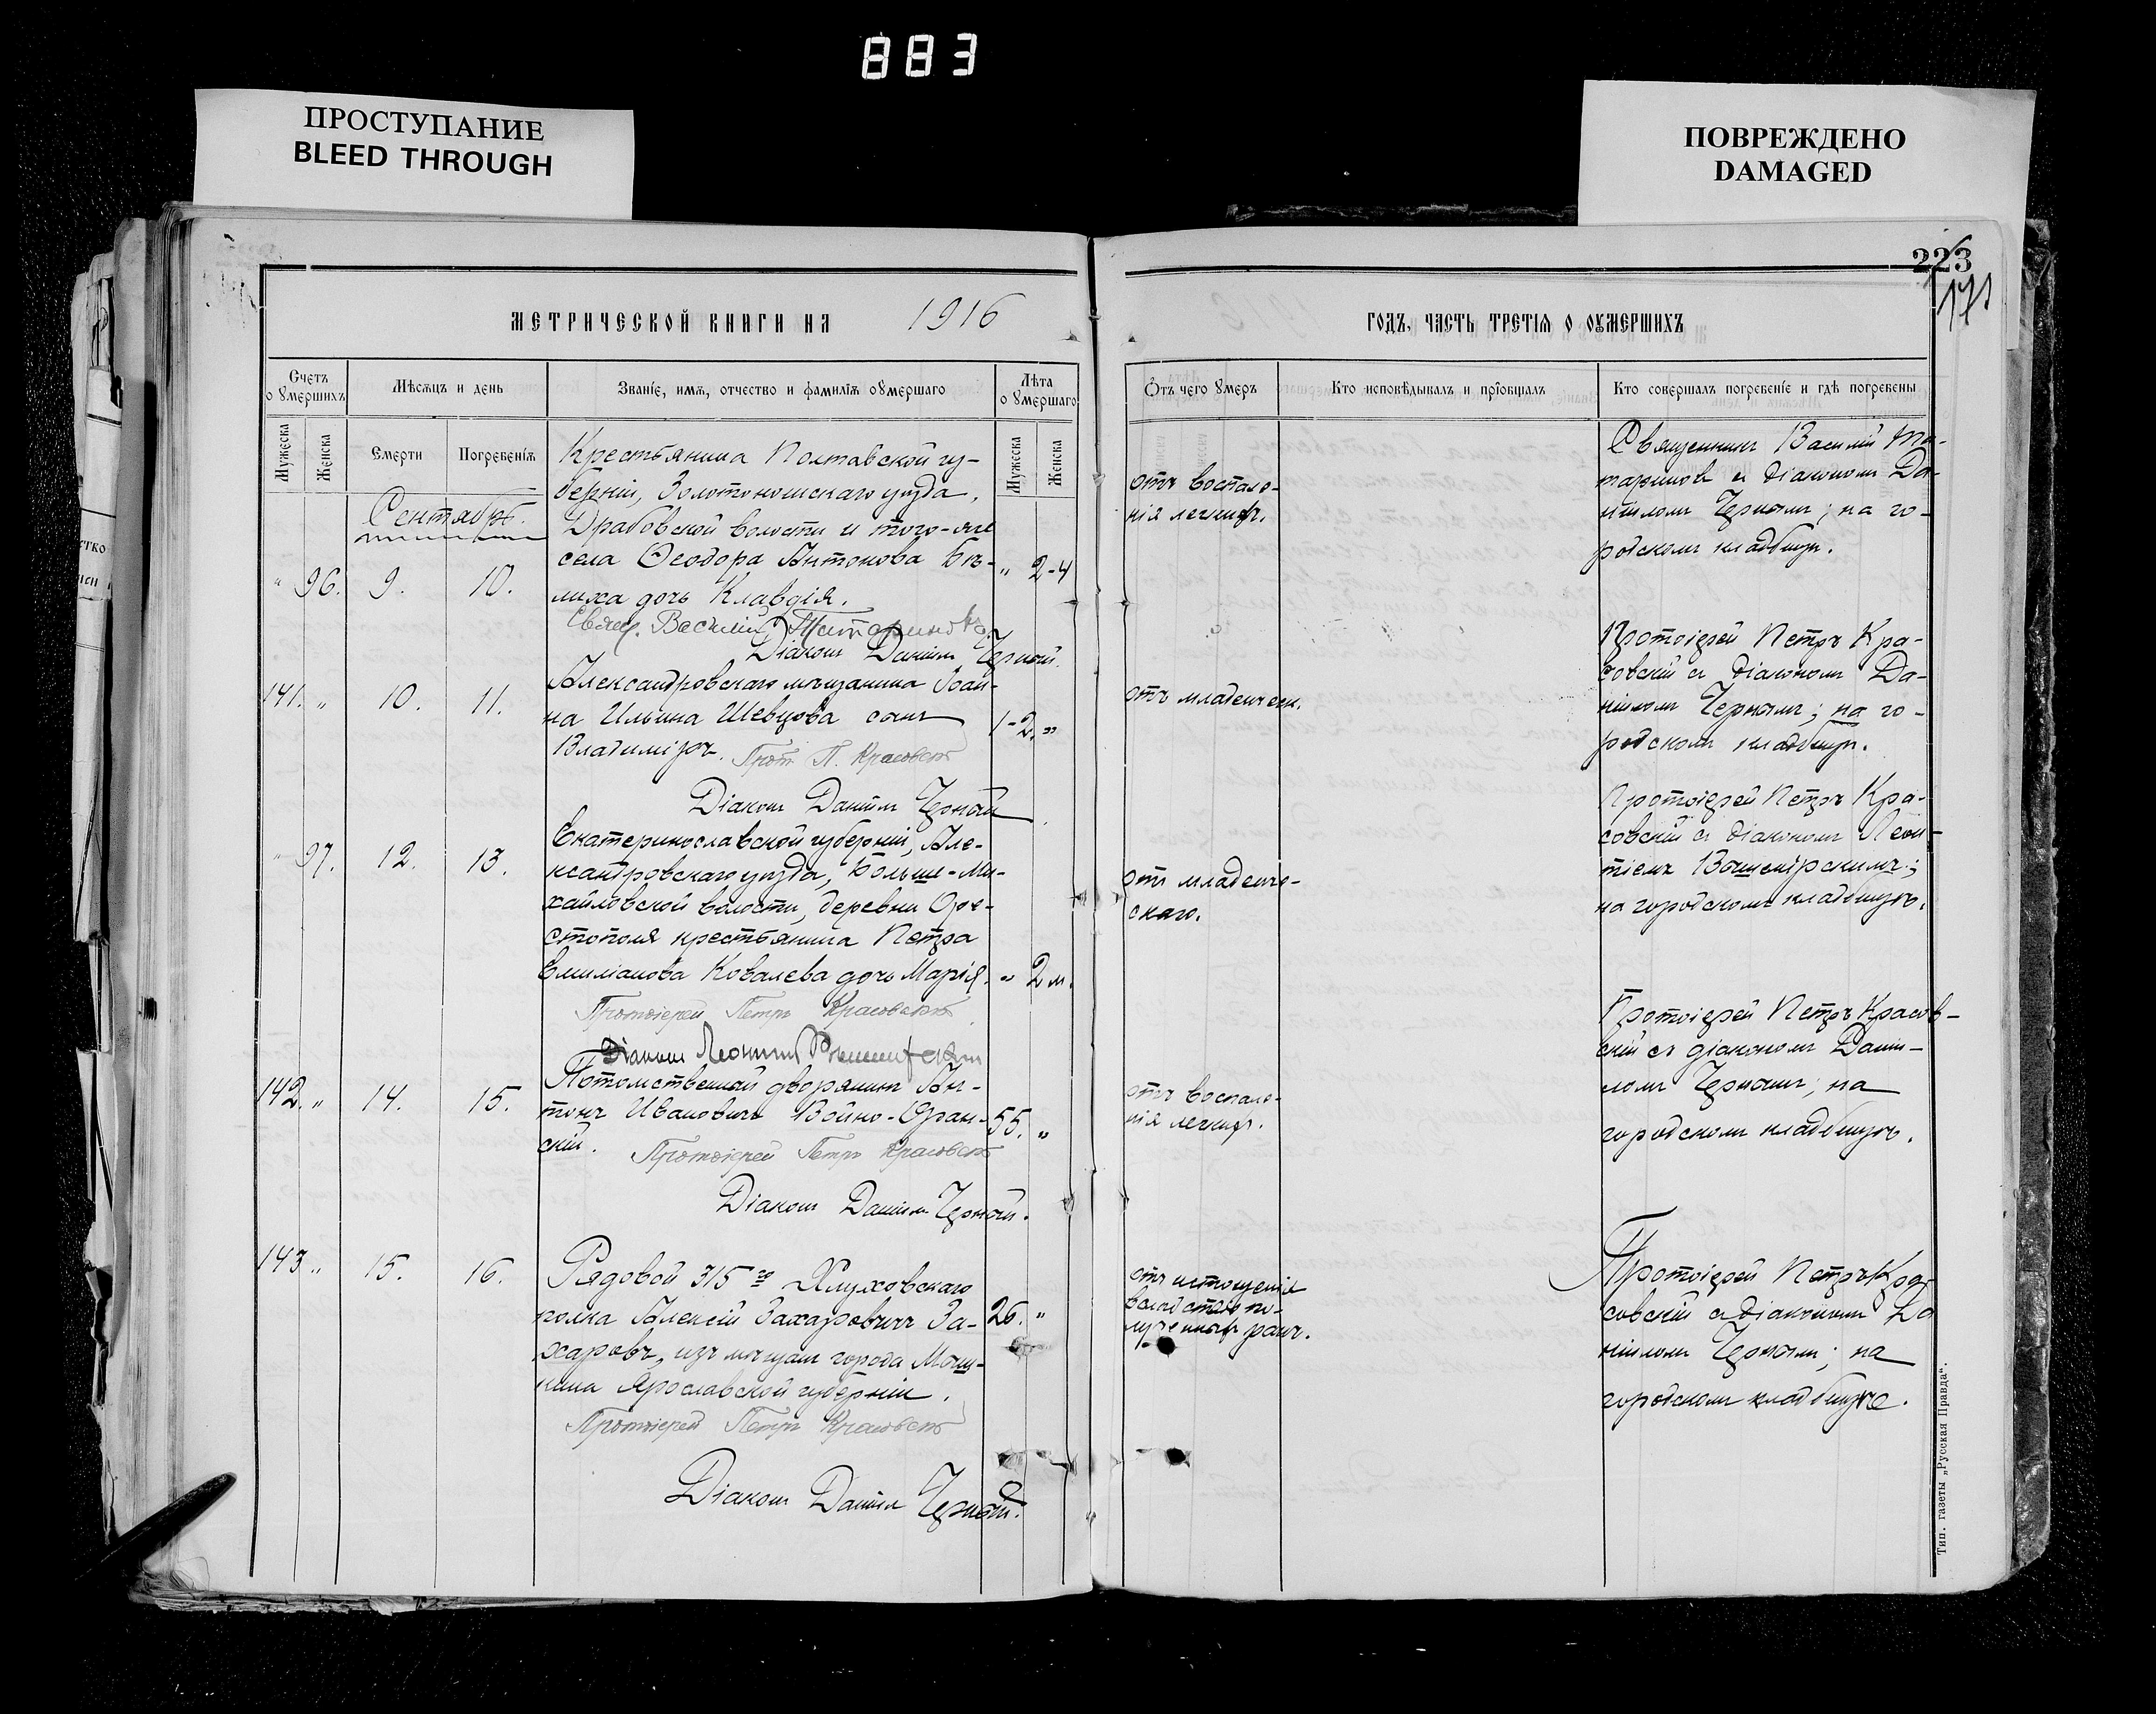 883
ПРОСТУПАНИЕ
BLEED THROUGH
ПОВРЕЖДЕНО
DAMAGED
223
171
МЕТРИЧЕСКОЙ КНИГИ НА 1916
ГОДЪ, ЧАСТЬ ТРЕТІЯ О ОУМЕРШИХЪ
Счетъ о умершихъ
Мѣсяцъ и день
Званіе, имя, отчество и фамилія оумершаго
Лѣта о умершаго
Отъ чего умеръ
Кто исповѣдывалъ и пріобщалъ
Кто совершалъ погребеніе и гдѣ погребены
Мужеска
Женска
Смерти
Погребенія
Мужеска
Женска
Сентябрь.
" 96. 9. 10.
Крестьянина Полтавской гу-
берніи, Золотоношскаго уѣзда,
Драбовской волости и того-же
села Ѳеодора Антонова Бѣ-
лиха дочь Клавдія.
" 2-4
Свящ. Василій Татариновъ
Діаконъ Даніилъ Черный.
отъ воспале-
нія легкихъ.
Священникъ Василій Та-
тариновъ съ діакономъ Да-
ніиломъ Чернымъ; на го-
родскомъ кладбищѣ.
141. " 10. 11.
Александровскаго мѣщанина Іоан-
на Ильина Шевцова сынъ
Владиміръ.
1-2. "
Прот. П. Красовскій
Діаконъ Даніилъ Черный
отъ младенческ.
Протоіерей Петръ Кра-
совскій съ діакономъ Да-
ніиломъ Чернымъ; на го-
родскомъ кладбищѣ.
" 97. 12. 13.
Екатеринославской губерніи, Але-
ксандровскаго уѣзда, Больше-Ми-
хайловской волости, деревни Оре-
стополя крестьянина Петра
Емиліанова Ковалева дочь Марія.
" 2 м.
Протоіерей Петръ Красовскій
Діаконъ Леонтій
отъ младенче-
скаго.
Протоіерей Петръ Кра-
совскій съ діакономъ Леон-
тіемъ
на городскомъ кладбищѣ.
142. " 14. 15.
Потомственный дворянинъ Ан-
тонъ Ивановичъ Войно-Оран-
скій.
55. "
Протоіерей Петръ Красовскій
Діаконъ Даніилъ Черный.
отъ воспале-
нія легкихъ.
Протоіерей Петръ Красов-
скій съ діакономъ Даніи-
ломъ Чернымъ; на
городскомъ кладбищѣ.
143 " 15. 16.
Рядовой 315го Глуховскаго
полка Алексій Захаровичъ За-
харовъ, изъ мѣщанъ города Мыш-
кина Ярославской губерніи.
26. "
Протоіерей Петръ Красовскій
Діаконъ Даніилъ Черный.
отъ истощенія
вслѣдствіе по-
лученныхъ ранъ.
Протоіерей Петръ Кра-
совскій съ діакономъ Да
ніиломъ Чернымъ; на
городскомъ кладбище.
Тип. газеты „Русская Правда".